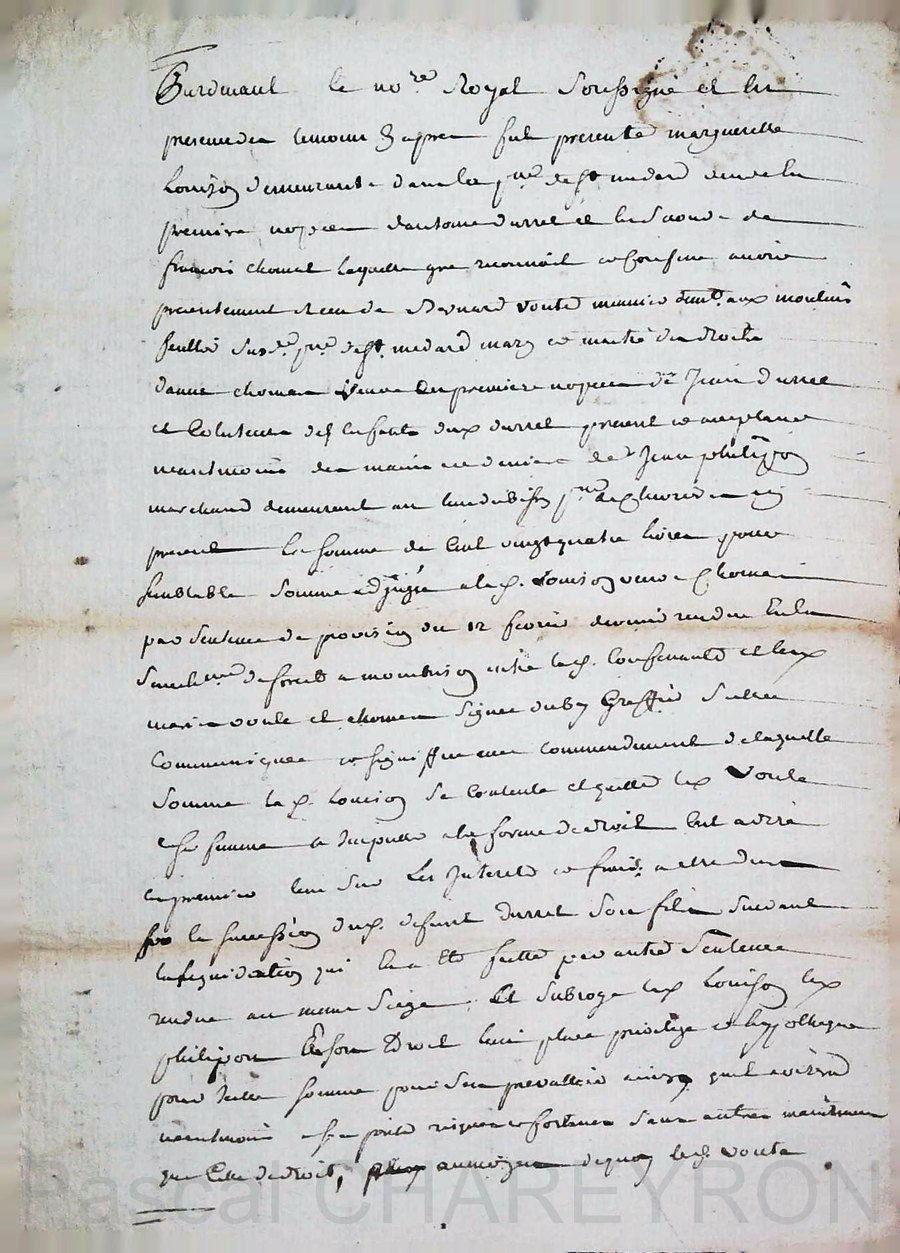 Pardevant le no.re Royal Soussigné et les
presence des temoins apres fut presente marguerette
Louison demeurante dans la p.sse de st medard veuve en
premiere nopces dantoine durret et en Seconde de
francois chomat laquelle gre reconnoit et confesse avoir
presentement Receu de Bernard voute meunier dem.t aux moulins
susd.e p.sse de st. medard mary et maitre des droits
danne chomat veuve en premiere nopces de Jean durret
et tuteur des enfants dud durret present et acceptant
neantmoins des mains et deniers de s.r Jean philippon
marchand demeurant au lieu p.sse de ici
present La somme de Cent vingt quatre livres pour
semblable somme adjugée a lad. Louison veuve Chomat
par Sentence de provision du 12 fevrier dernier rendue En la
Senech.ée de forest a montbrison entre lad. Confessante et lesd
mariés voute et chomat Signée Greffier Scellée
Communiquée et signiffiée avec commandement de laquelle
somme lad. Louison Se Contente et quitte led Voute
Ses somme a Imputer a la forme de droit
en premier lieu Sur Les Interets et frais a elle dus
sur la succession dud. defunt durret Son fils Suivant
la liquidation qui En a été faitte par autre Sentence
rendue au meme Siege, Et Subroge lad Louison led
philippon En son Droit lieu place privilege et hypotheque
pour telle somme pour Sen prevalloir ainsy quil avisera
neantmoins a ses perils risques et fortunes Sans autre maintenue
que Celle de droit, au moyen dequoy led. voute
Pascal CHAREYRON